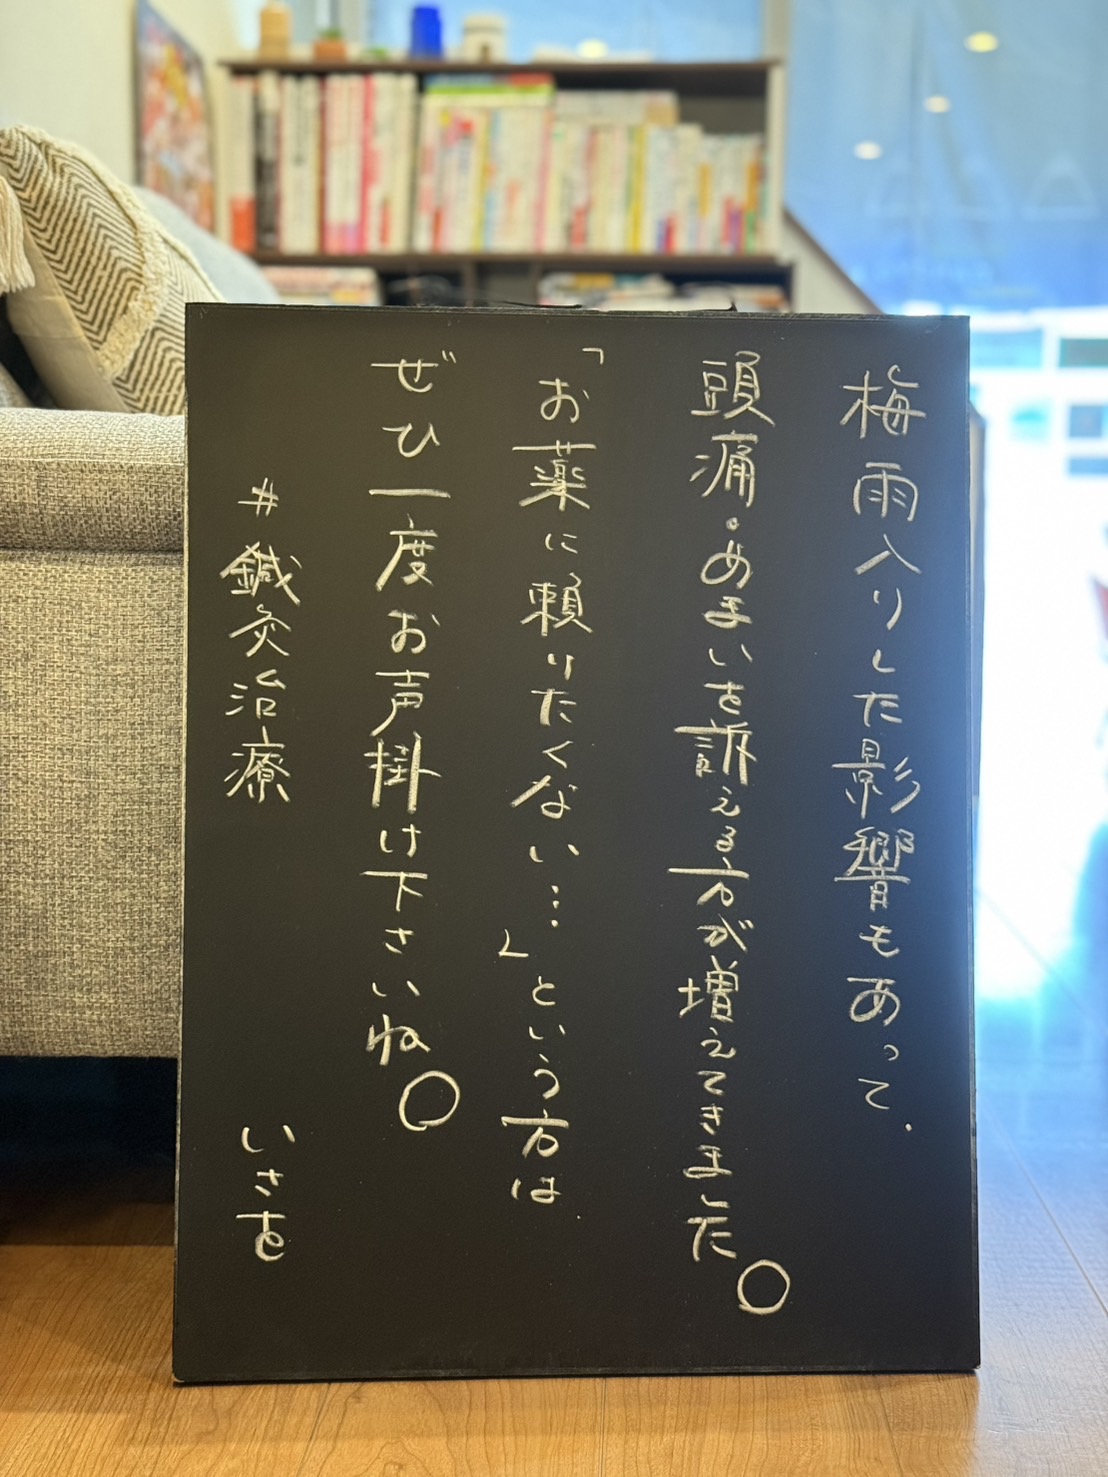 梅雨入りした影響もあって、
頭痛・めまいを訴える方が増えてきました。
「お薬に頼りたくない…」という方は
ぜひ一度お声掛け下さいね。
#鍼灸治療 いさを